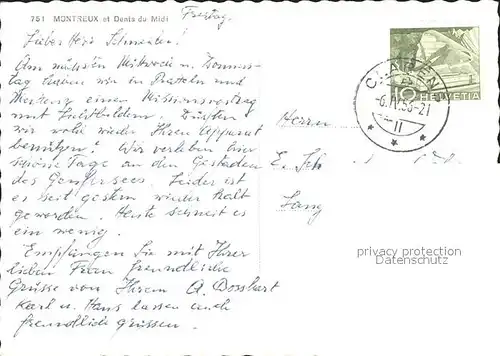 751 MONTREUX et Dents du Midi
Freitag.
Lieber Herr Schneider!
Am nächsten Mittwoch u. Donners-
tag haben wir in Pratteln und
Muttenz einen Missionsvortrag
mit Lichtbildern. Dürften
wir wohl wieder Ihren Apparat
benützen? Wir verleben hier
schöne Tage an den Gestaden
des Genfersees. Leider ist
es seit gestern wieder kalt
geworden. Heute schneit es
ein wenig.
Empfangen Sie mit Ihrer
lieben Frau freundliche
Grüsse von Ihrem A. Bosshart
Karl u. Hans lassen auch
freundlich grüssen.
HELVETIA
10
-6.IV.56-21
II
Herrn
E. Sch
privacy protection
Datenschutz